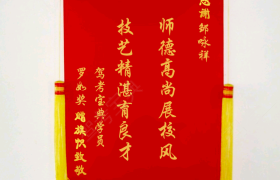 感谢邹咏祥
师德高尚展校风
技艺精湛育良才
驾考宝典学员
罗如奖 赠旗帜致敬